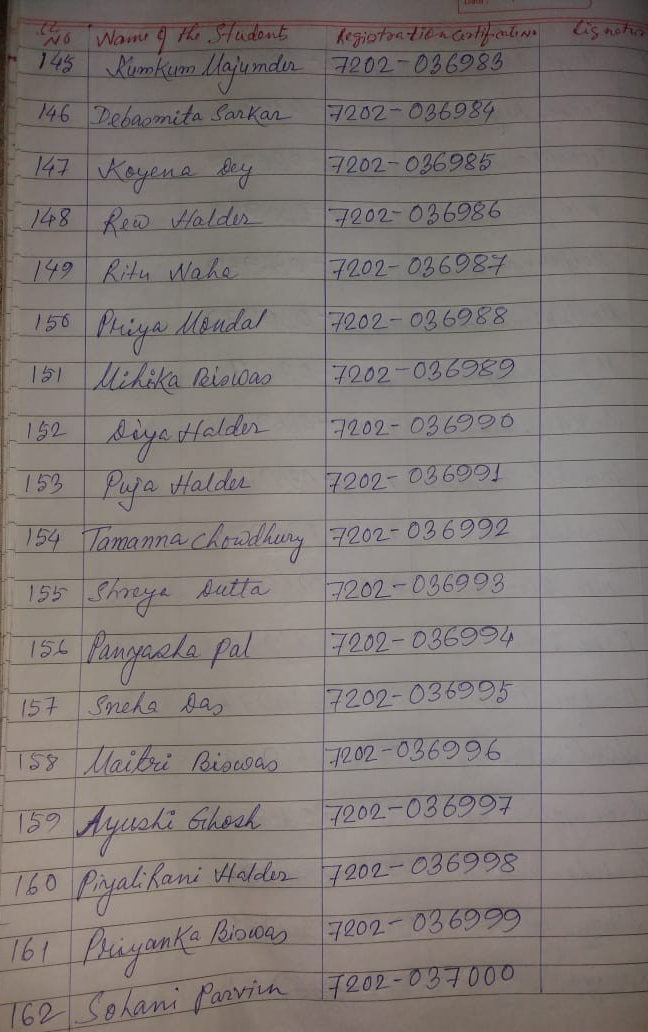 SL No Name of the Students Registration Certificate No Signature
145 Kumkum Majumder 7202-036983
146 Debasmita Sarkar 7202-036984
147 Koyena Dey 7202-036985
148 Rew Halder 7202-036986
149 Ritu Naha 7202-036987
150 Priya Mondal 7202-036988
151 Mihika Biswas 7202-036989
152 Diya Halder 7202-036990
153 Puja Halder 7202-036991
154 Tamanna Chowdhury 7202-036992
155 Shreya Dutta 7202-036993
156 Panyasha Pal 7202-036994
157 Sneha Das 7202-036995
158 Maitri Biswas 7202-036996
159 Ayushi Ghosh 7202-036997
160 Piyalihani Halder 7202-036998
161 Priyanka Biswas 7202-036999
162 Sohani Parvin 7202-037000